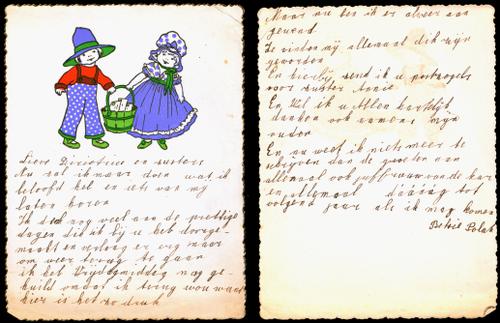 Lieve Directrice en zusters
Nu zal ik maar doen wat ik
beloofd heb en iets van mij
laten horen
Ik denk nog veel aan de prettige
dagen die ik bij u heb doorge-
maakt en verlang er erg naar
om weer terug te gaan
ik heb Vrijdagmiddag nog ge-
huild omdat ik terug wou want
hier is het zo druk
Maar nu ben ik er alweer aan
gewend
Ze vinden mij allemaal dik zijn
geworden
En hierbij zend ik u postzegels
voor zuster Annie
En wil ik u Allen hartelijk
danken ook namens mijn
ouders
En nu weet ik niets meer te
schrijven dan de groeten aan
allemaal ook juffrouw van de
en allemaal dááág tot
volgend jaar als ik mag komen
Betsie Polak